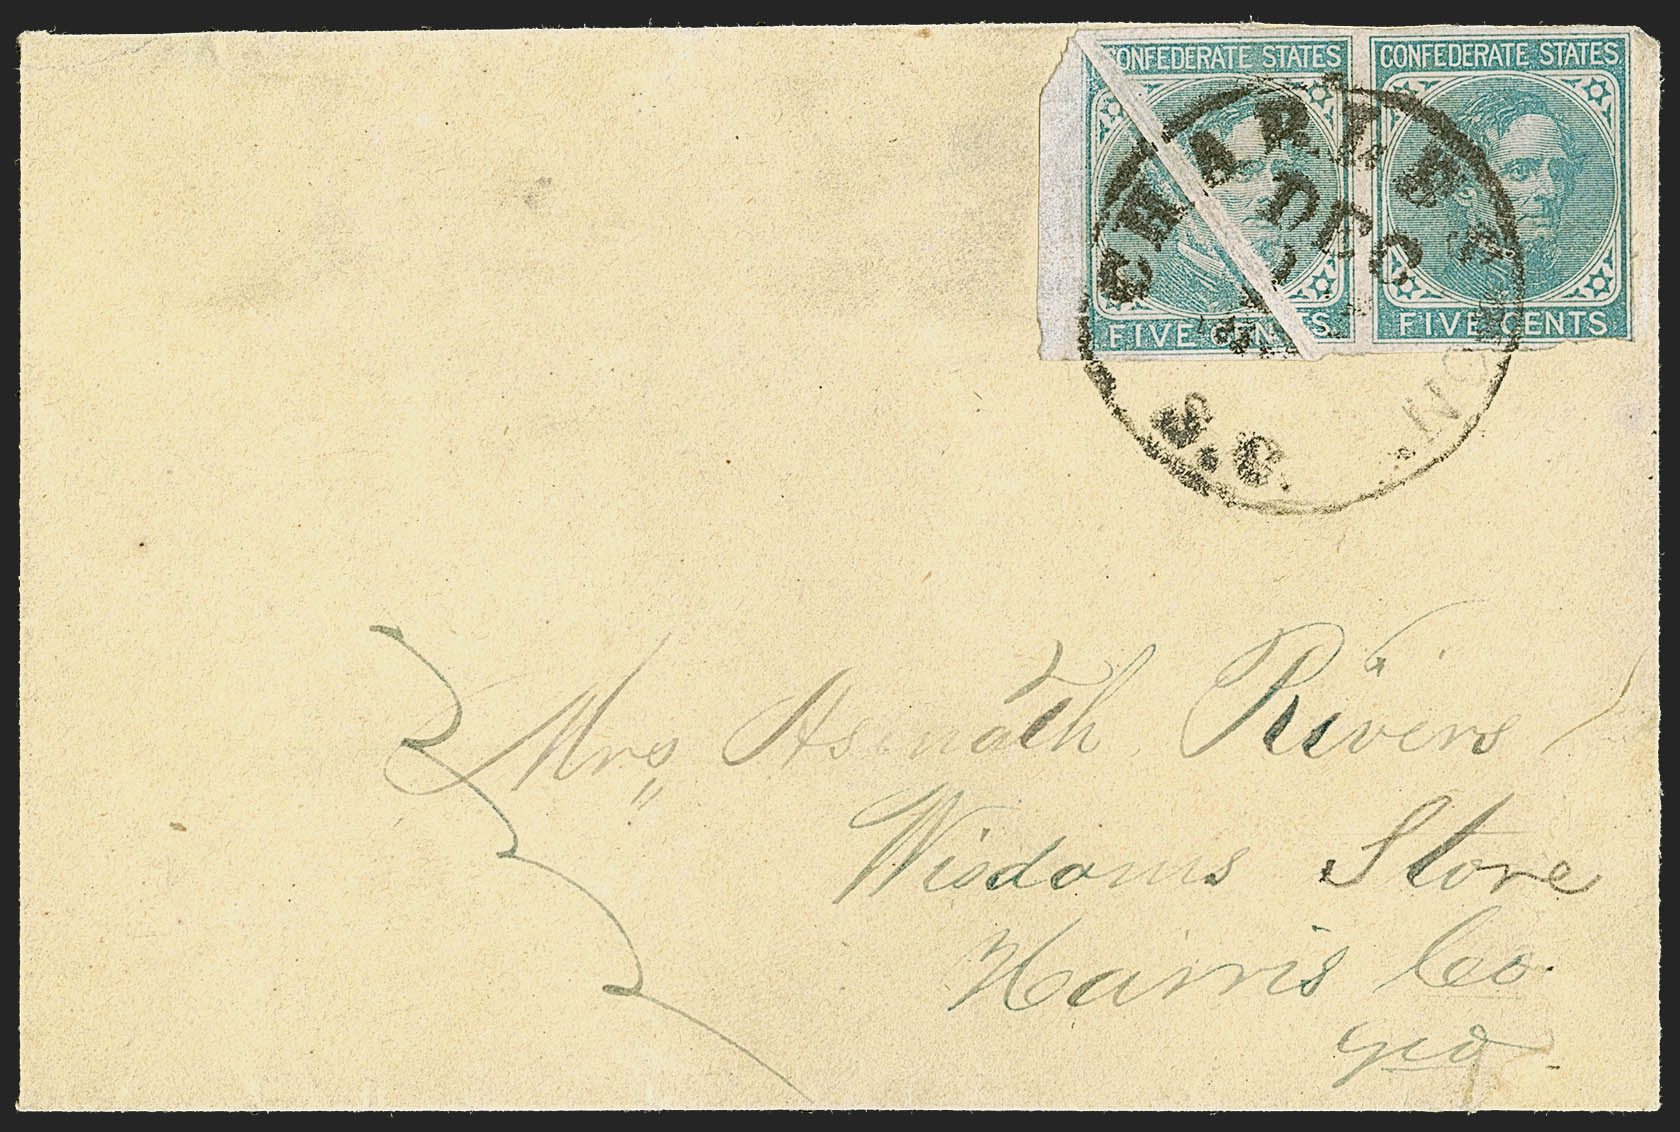 CONFEDERATE STATES CONFEDERATE STATES
FIVE CENTS FIVE CENTS
CHARLESTON
DEC
S.C.
Mrs Asenath Rivers
Wisdoms Store
Harris Co.
Geo